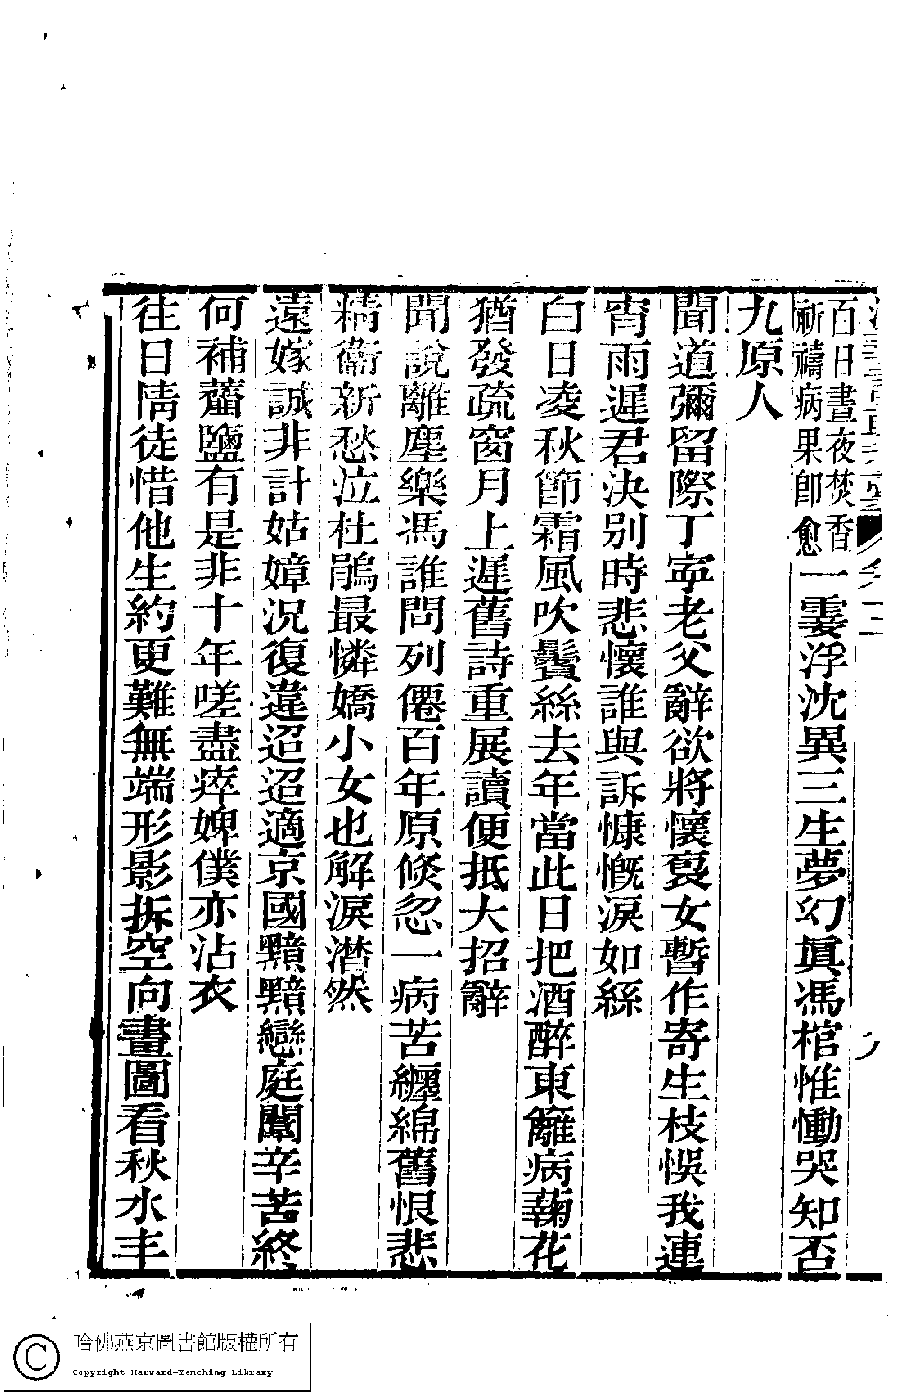 百日晝夜焚香
祈禱病果卽愈
一霎浮沈異三生夢幻眞馮棺惟慟哭知否
九原人
聞道彌留際丁寧老父辭欲將懷裏女暫作寄生枝悞我連
宵雨遲君決别時悲懷誰與訴慷慨淚如絲
白日凌秋節霜風吹鬢絲去年當此日把酒醉東籬病菊花
猶發疏窗月上遲舊詩重展讀便抵大招辭
聞說離塵樂馮誰問列僊百年原倐忽一病苦纏綿舊恨悲
精衞新愁泣杜鵑最憐嬌小女也解淚潸然
遠嫁誠非計姑嫜況復違迢迢適京國黯黯戀庭闈辛苦終
何補虀鹽有是非十年嗟盡瘁婢僕亦沾衣
往日情徒惜他生約更難無端形影拆空向畫圖看秋水丰
哈佛燕京圖書館版權所有
Copyright Harvard-Yenching Library